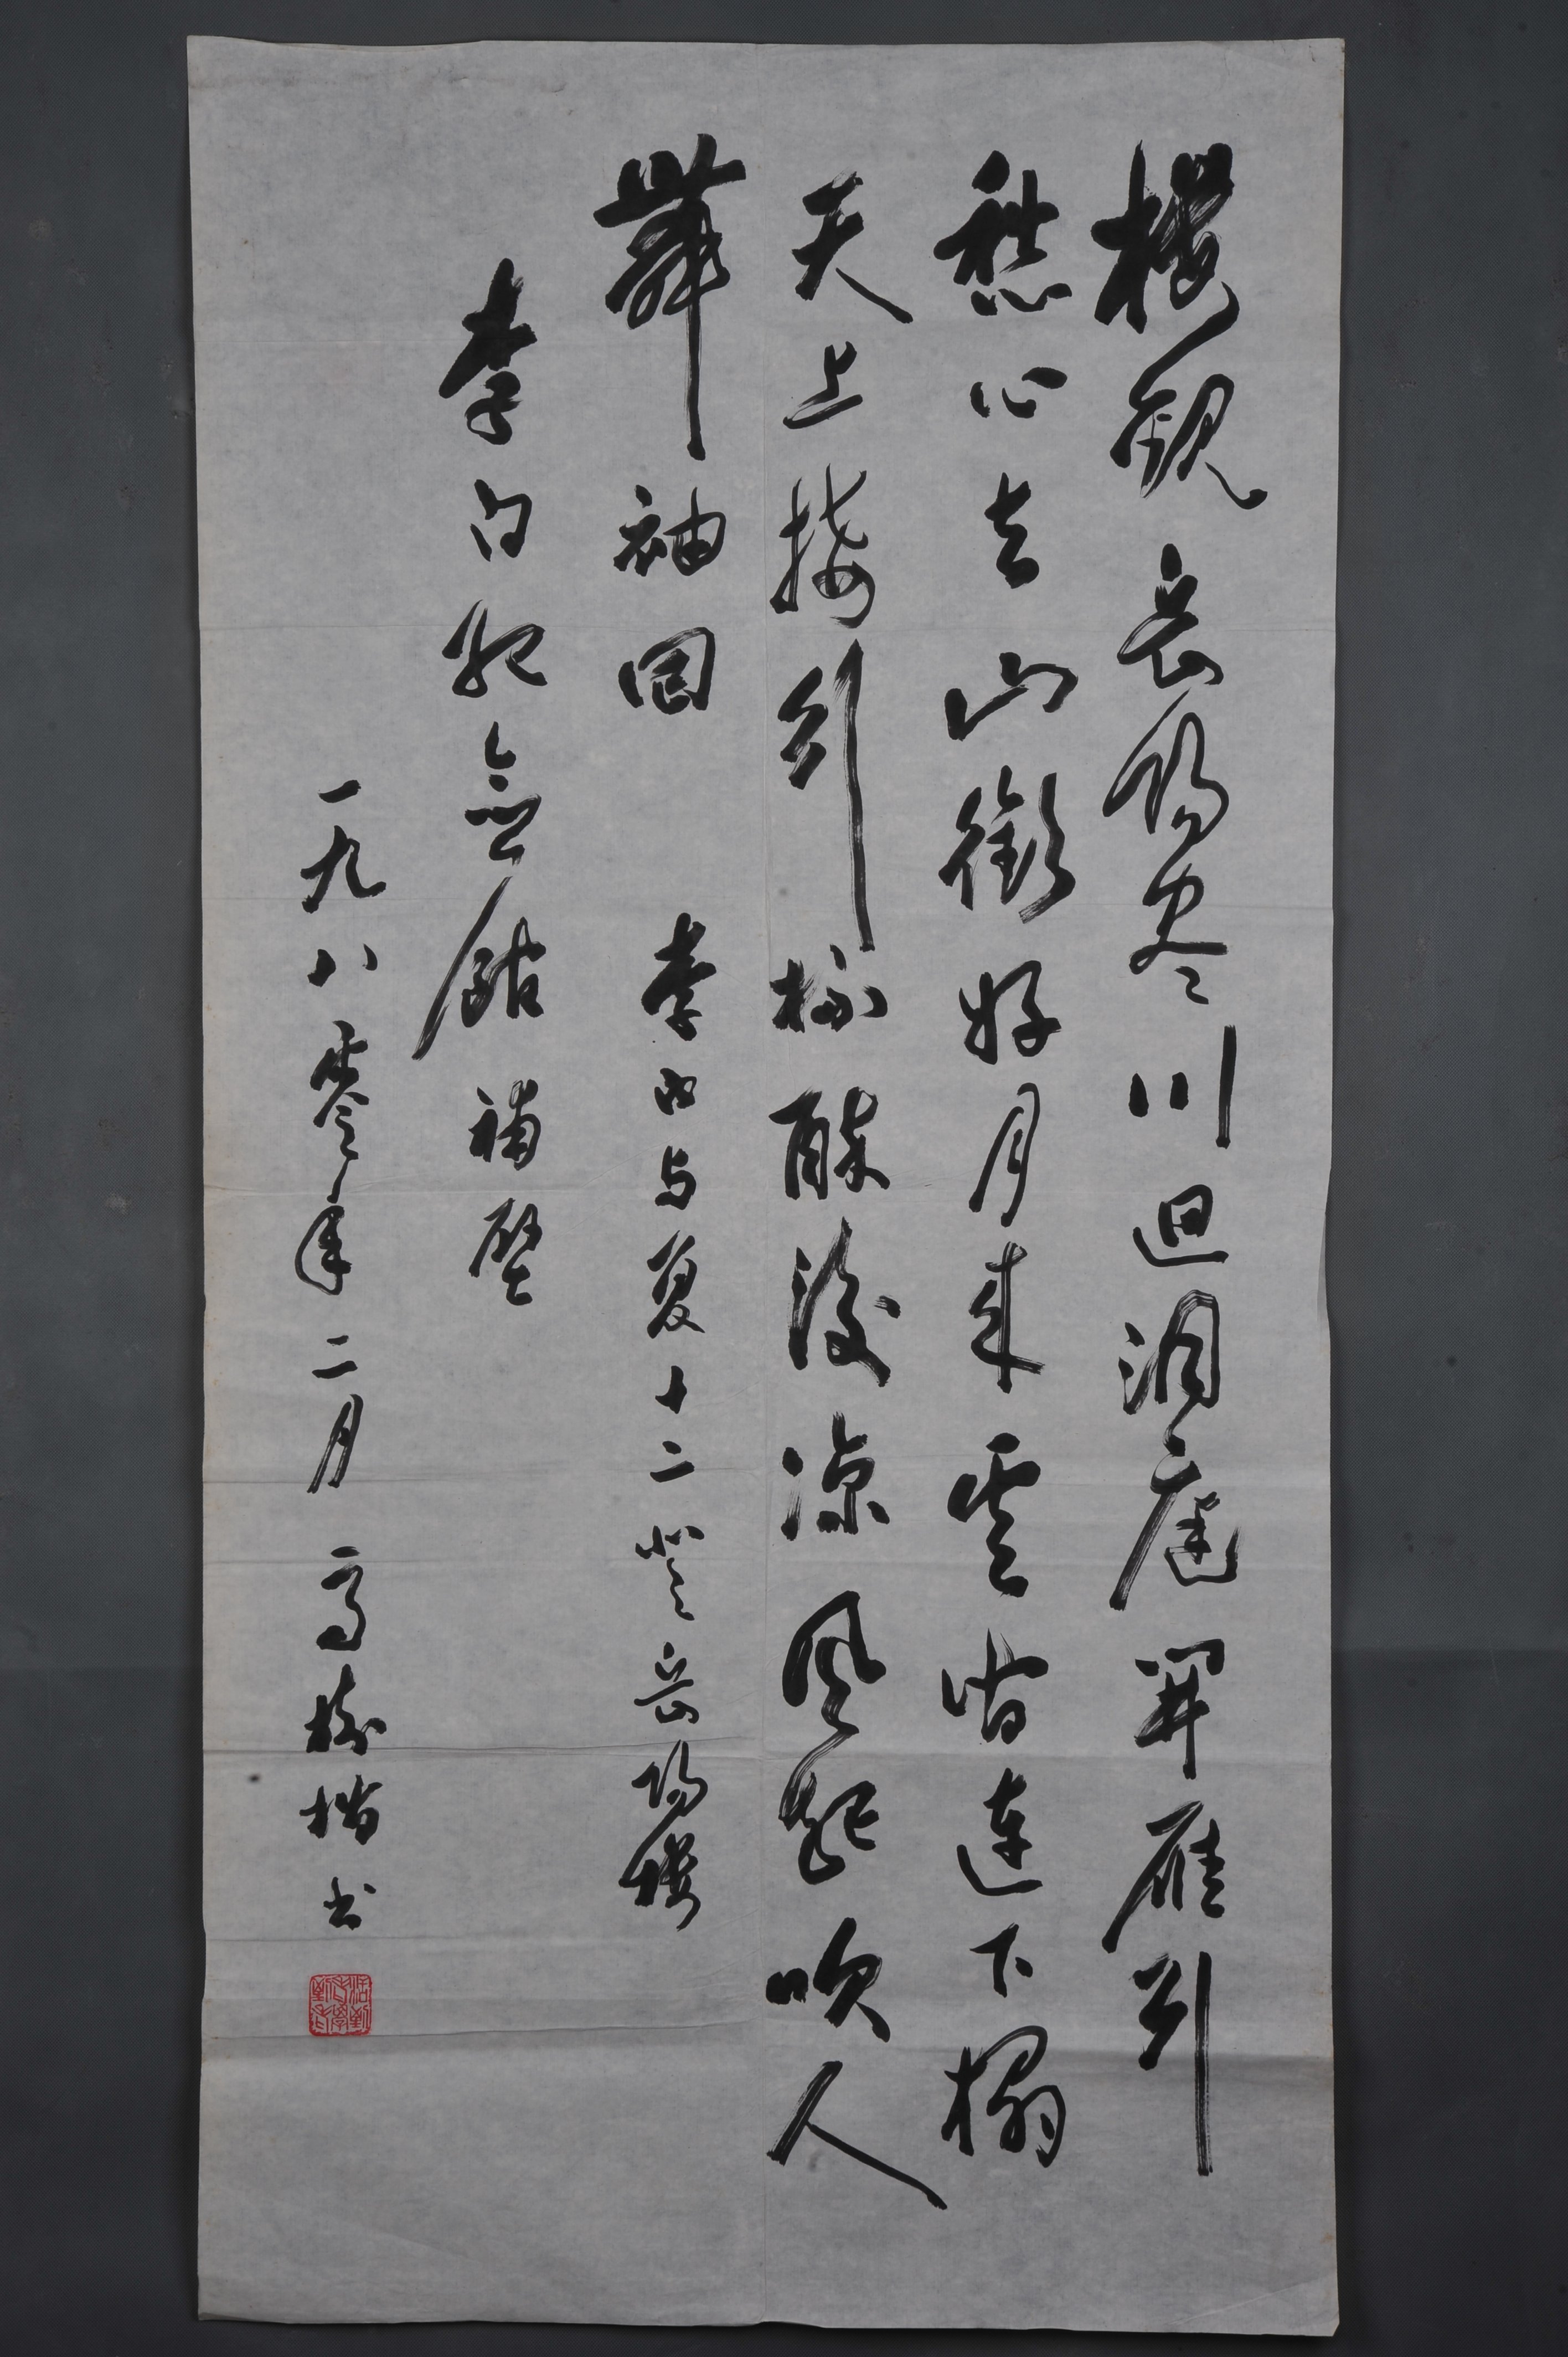 樓觀岳陽尽川迥洞庭開雁引
愁心去山銜好月来雲間連下榻
天上接引杯醉後凉風起吹人
舞袖回 李白与夏十二登岳陽樓
李白紀念館補壁
一九八零年二月 高樹楷书